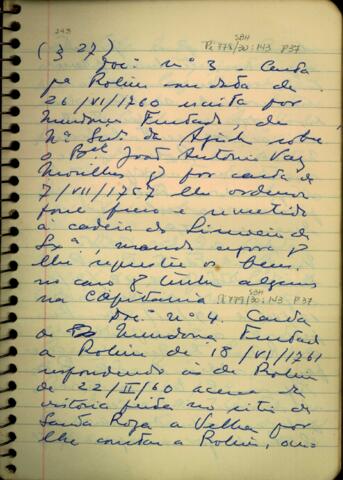 243
SBH
Pi 778/30:143 P37
(§ 27)
Doc. nº 3 - Carta
pª Rolim datada de
26/VI/1760 escrita por
Mendonça Furtado, de
Nª Srª da Ajuda sobre
o Bel João Antonio Vaz
Morilhas q por carta de
7/VII/1757 lhe ordenou
fosse preso e remettido
à cadeia do Limoeiro de
Lxª, manda agora q
lhe os bens
no caso q tenha alguns
na capitania
SBH
Pi 778/30:143 P37
Doc. nº 4. Carta
de Mendonça Furtado
a Rolim de 18/VI/1761
respondendo às de Rolim
de 22/II/60 acerca da
victoria no sitio de
Santa Roza a Velha por
lhe constar a Rolim,